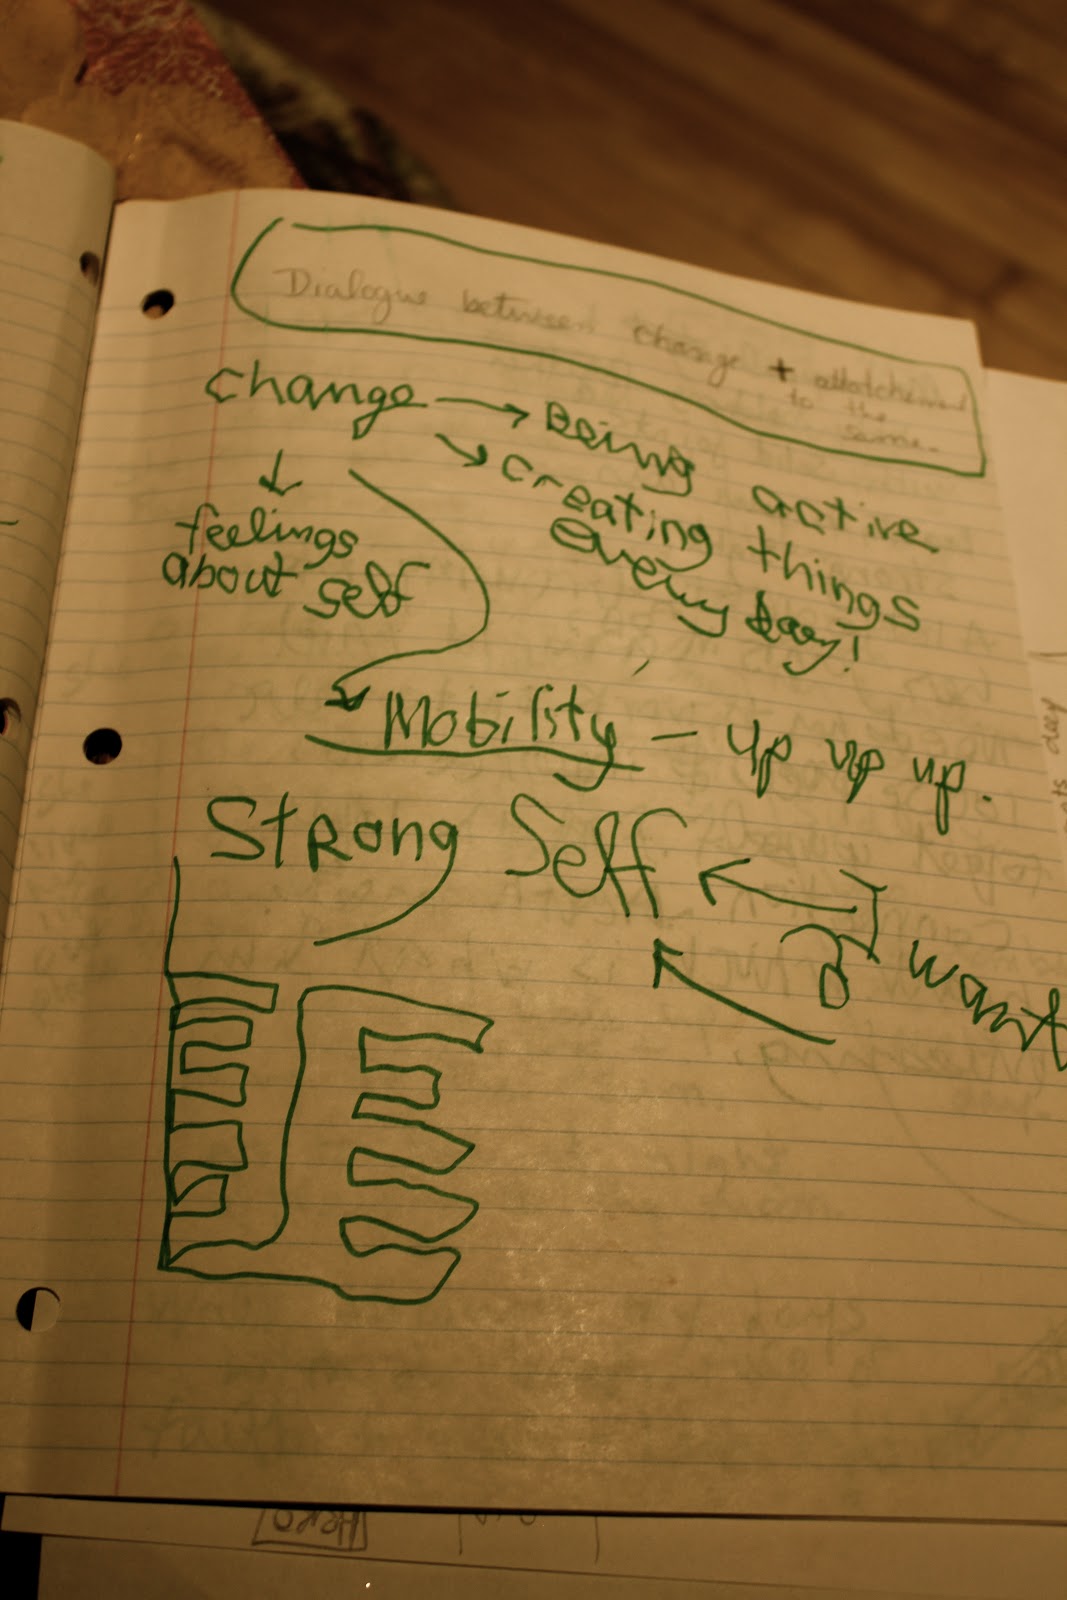 Dialogue between change + attatchement
to the
same.
change → Being active
↘ creating things
every day!
↓
feelings
about self
Mobility - up up up.
Strong Self ←
I want
Hero